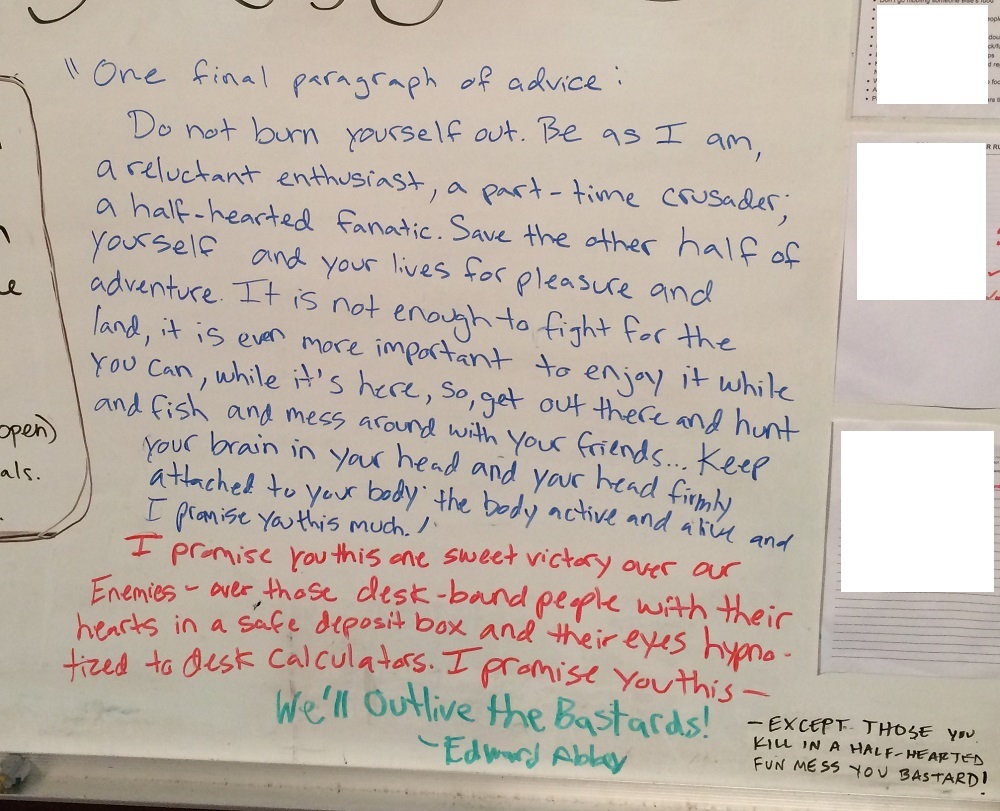 "One final paragraph of advice:
Do not burn yourself out. Be as I am,
a reluctant enthusiast, a part-time crusader;
a half-hearted fanatic. Save the other half of
yourself and your lives for pleasure and
adventure. It is not enough to fight for the
land, it is even more important to enjoy it while
you can, while it's here, so, get out there and hunt
and fish and mess around with your friends... Keep
your brain in your head and your head firmly
attached to your body the body active and alive and
I promise you this much.
I promise you this one sweet victory over our
Enemies - over those desk-band people with their
hearts in a safe deposit box and their eyes hypno-
tized to desk calculators. I promise you this -
We'll Outlive the Bastards!
- Edward Abby
- EXCEPT THOSE YOU
KILL IN A HALF-HEARTED
FUN MESS YOU BASTARD!
open)
als.